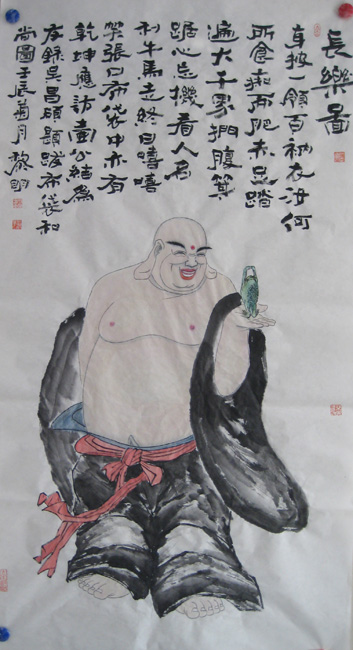 長樂圖
身披一領百衲衣汝何
所食痴而肥赤足踏
遍大千界捫腹箕
踞心忘機看人名
利牛馬走終日嘻嘻
笑張口布袋中亦有
乾坤應訪壺公結為
友錄吳昌碩題跋布袋和
尚圖壬辰菊月黎明